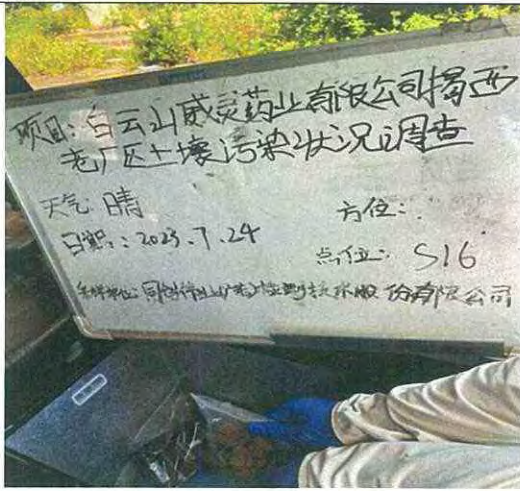 项目:白云山威灵药业有限公司揭西
老厂区土壤污染状况调查
天气:晴
方位:
日期:2023.7.24
点位:S16
采样单位:同创伟业(广东)检测技术股份有限公司